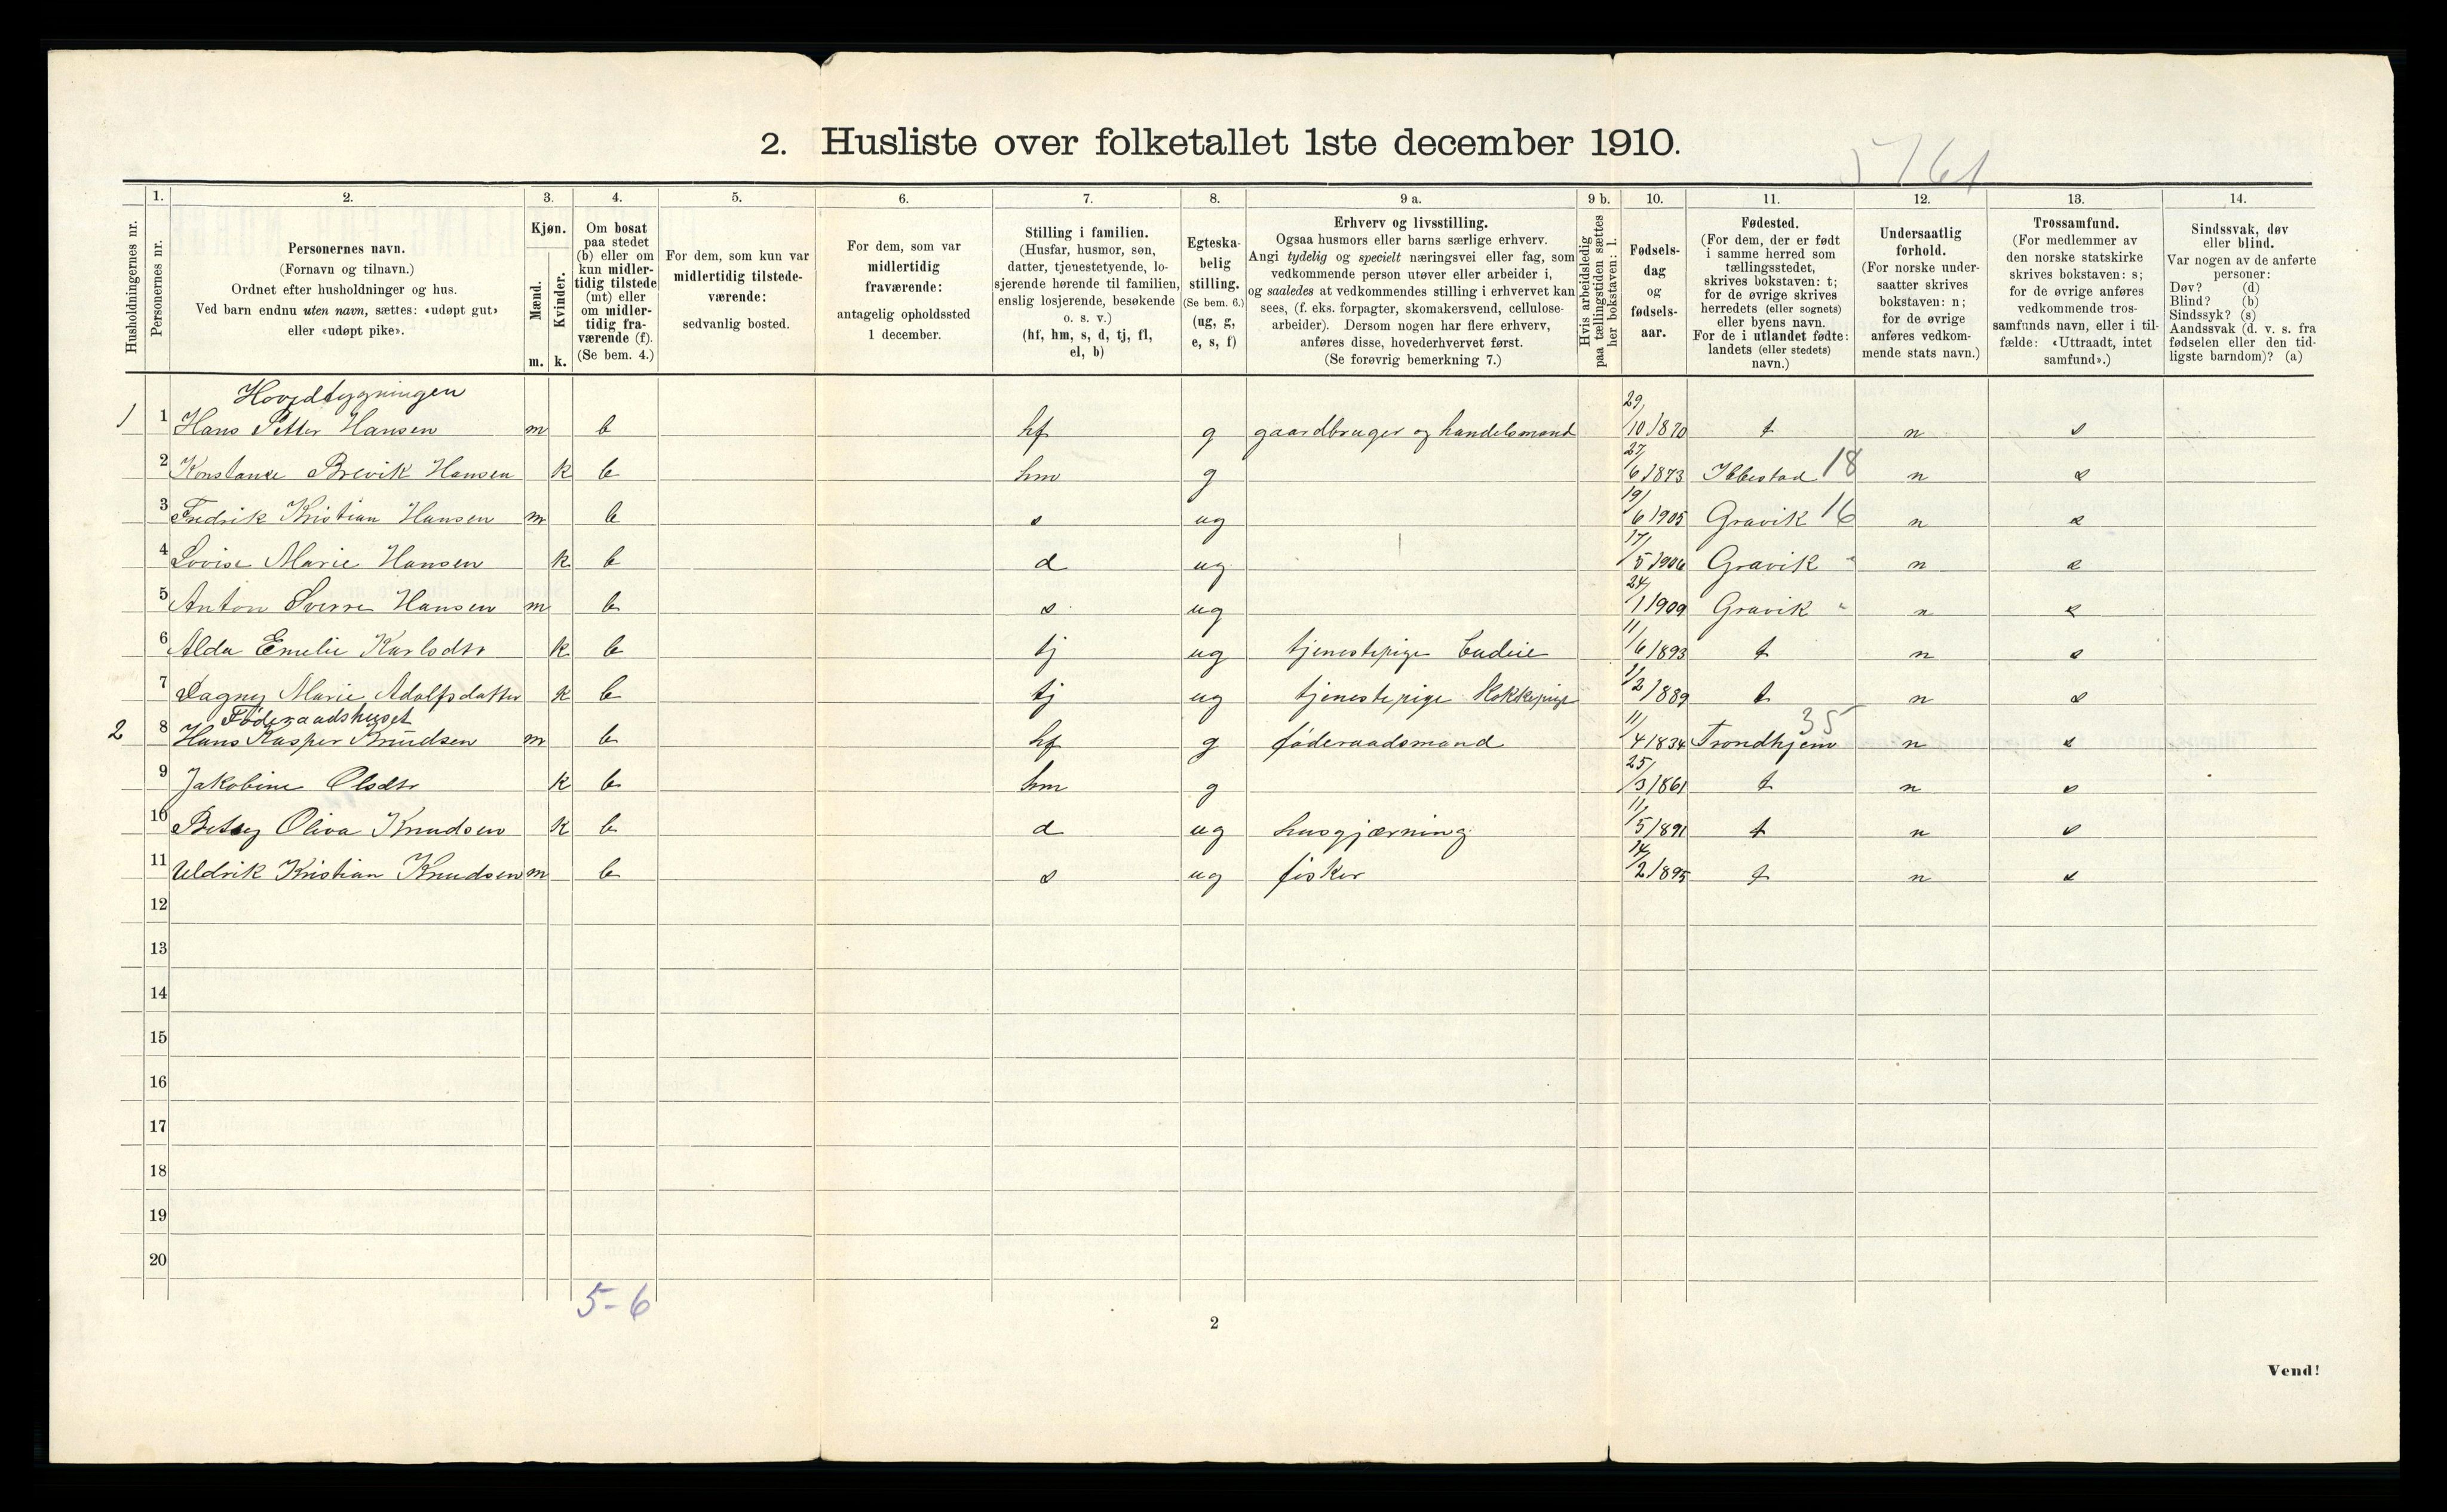 2. Husliste over folketallet 1ste december 1910.
5761
Husholdningernes nr.
1.
Personernes nr.
2.
Personernes navn.
(Fornavn og tilnavn.)
Ordnet efter husholdninger og hus.
Ved barn endnu uten navn, sættes: «udøpt gut»
eller «udøpt pike».
3.
Kjøn.
Mænd.
m.
Kvinder.
k.
4.
Om bosat
paa stedet
(b) eller om
kun midler-
tidig tilstede
(mt) eller
om midler-
tidig fra-
værende (f).
(Se bem. 4.)
5.
For dem, som kun var
midlertidig tilstede-
værende:
sedvanlig bosted.
6.
For dem, som var
midlertidig
fraværende:
antagelig opholdssted
1 december.
7.
Stilling i familien.
(Husfar, husmor, søn,
datter, tjenestetyende, lo-
sjerende hørende til familien,
enslig losjerende, besøkende
o. s. v.)
(hf, hm, s, d, tj, fl,
el, b)
8.
Egteska-
belig
stilling.
(Se bem. 6.)
(ug, g,
e, s, f)
9 a.
Erhverv og livsstilling.
Ogsaa husmors eller barns særlige erhverv.
Angi tydelig og specielt næringsvei eller fag, som
vedkommende person utøver eller arbeider i,
og saaledes at vedkommendes stilling i erhvervet kan
sees, (f. eks. forpagter, skomakersvend, cellulose-
arbeider). Dersom nogen har flere erhverv,
anføres disse, hovederhvervet først.
(Se forøvrig bemerkning 7.)
9 b.
Hvis arbeidsledig
paa tællingstiden sættes
her bokstaven: l.
10.
Fødsels-
dag
og
fødsels-
aar.
11.
Fødested.
(For dem, der er født
i samme herred som
tællingsstedet,
skrives bokstaven: t;
for de øvrige skrives
herredets (eller sognets)
eller byens navn.
For de i utlandet fødte:
landets (eller stedets)
navn.)
12.
Undersaatlig
forhold.
(For norske under-
saatter skrives
bokstaven: n;
for de øvrige
anføres vedkom-
mende stats navn.)
13.
Trossamfund.
(For medlemmer av
den norske statskirke
skrives bokstaven: s;
for de øvrige anføres
vedkommende tros-
samfunds navn, eller i til-
fælde: «Uttraadt, intet
samfund».)
14.
Sindssvak, døv
eller blind.
Var nogen av de anførte
personer:
Døv? (d)
Blind? (b)
Sindssyk? (s)
Aandssvak (d. v. s. fra
fødselen eller den tid-
ligste barndom)? (a)
Hovedbygningen
1 1 Hans Petter Hansen m b hf g gaardbruger og handelsmand 29/10 1870 t n s
2 Konstanse Brevik Hansen k b hm g 27/6 1873 Ibbestad 18 n s
3 Fredrik Kristian Hansen m b s ug 19/6 1905 Gravik 16 n s
4 Lovise Marie Hansen k b d ug 17/5 1906 Gravik " n s
5 Anton Sverre Hansen m b s ug 24/1 1909 Gravik " n s
6 Alda Emelie Karlsdtr k b tj ug tjenestepige budeie 11/6 1893 t n s
7 Dagny Marie Adolfsdatter k b tj ug tjenestepige Kokkepige 1/2 1889 t n s
Føderaadshuset
2 8 Hans Kasper Knudsen m b hf g føderaadsmand 11/4 1834 Trondhjem 35 n s
9 Jakobine Olsdtr k b hm g 25/3 1861 t n s
10 Betsey Oliva Knudsen k b d ug husgjærning 11/5 1891 t n s
11 Uldrik Kristian Knudsen m b s ug fisker 14/2 1895 t n s
12
13
14
15
16
17
18
19
20
5-6
2
Vend!